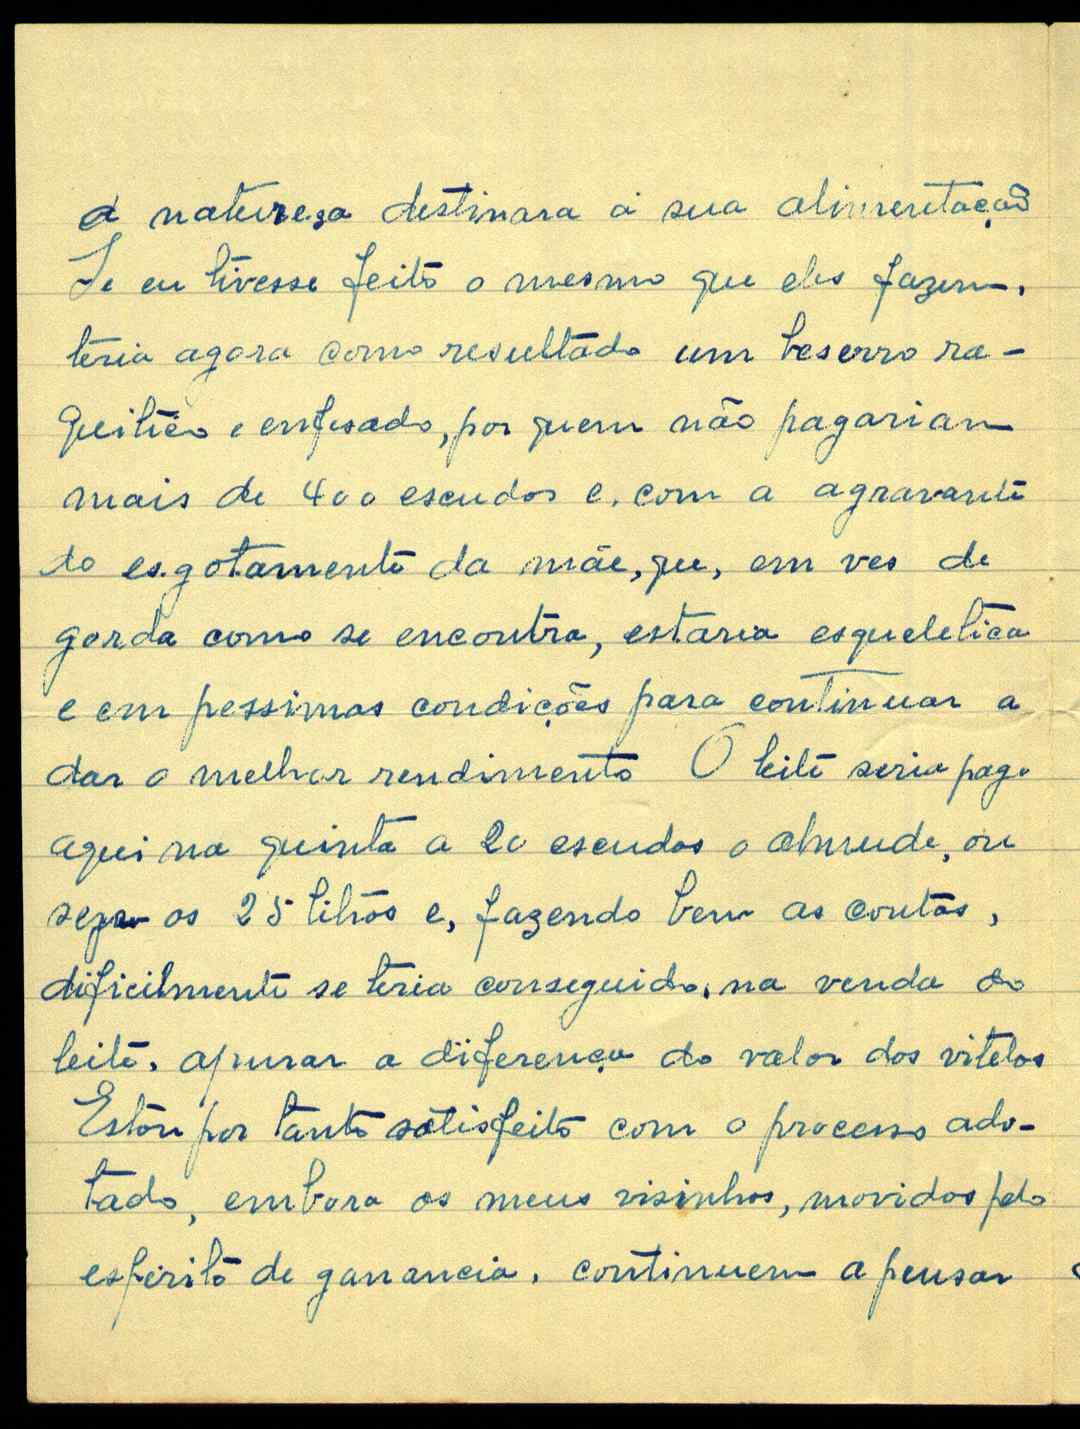 a natureza destinara á sua alimentação
Se eu tivesse feito o mesmo que eles fazem,
teria agora como resultado um beserro ra-
quitico e enfesado, por quem não pagariam
mais de 400 escudos e, com a agravante
do esgotamento da mãe, que, em ves de
gorda como se encontra, estaria esqueletica
e em pessimas condições para continuar a
dar o melhor rendimento O leite seria pago
aqui na quinta a 20 escudos o almude, ou
sejam os 25 litros e, fazendo bem as contas,
dificilmente se teria conseguido, na venda do
leite, apurar a diferença do valor dos vitelos
Estou por tanto satisfeito com o processo ado-
tado, embora os meus visinhos, movidos pelo
espirito de ganancia, continuem a pensar